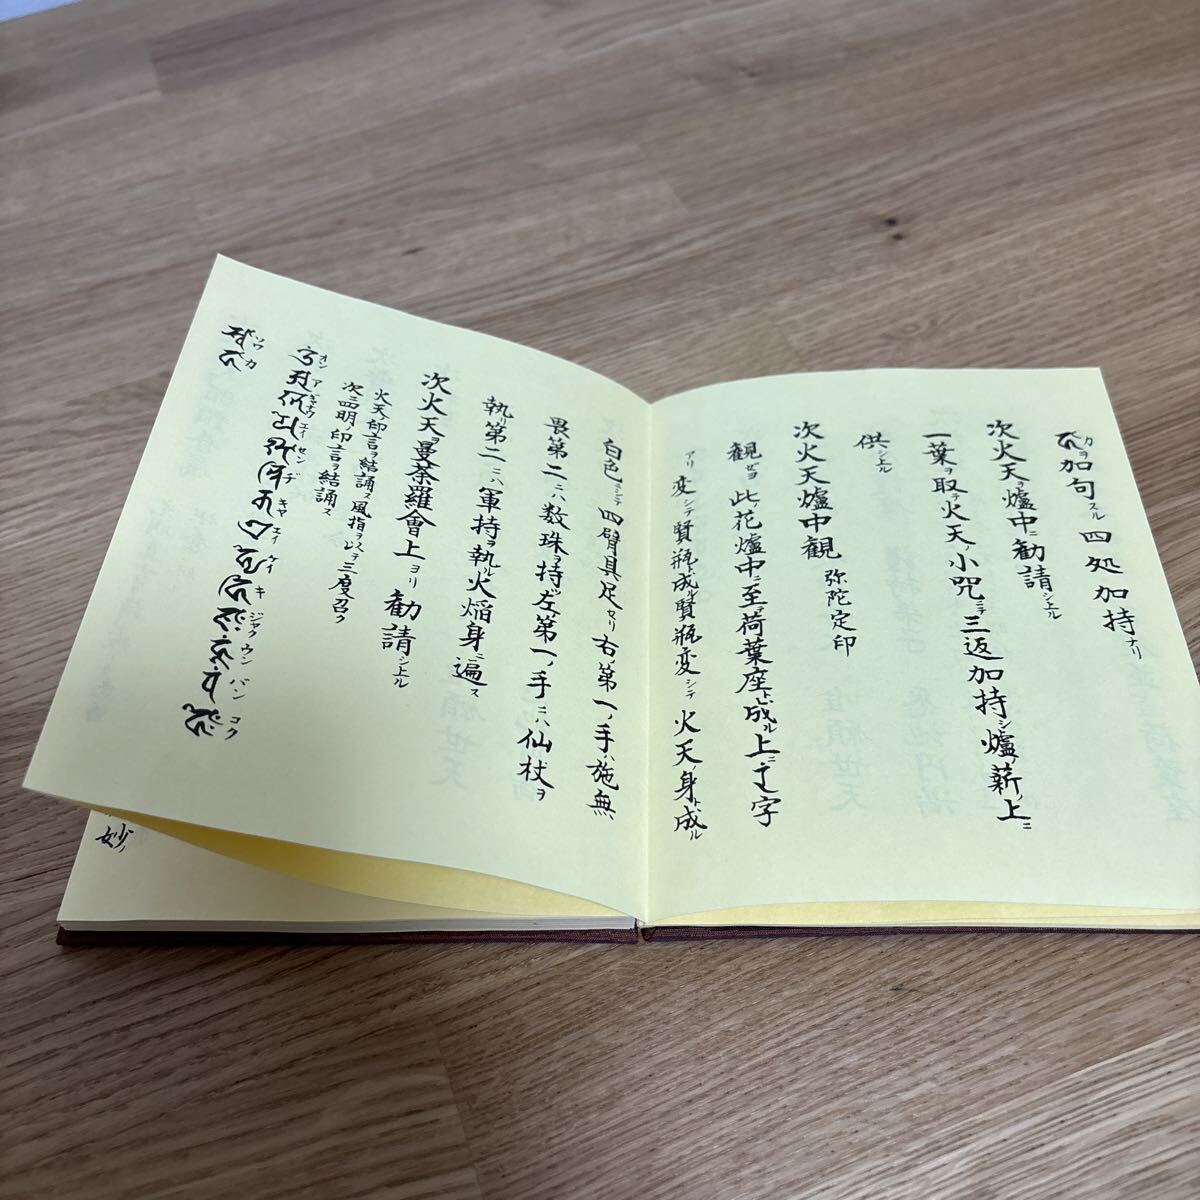 加句スル四処加持ナリ
次火天ヲ爐中ニ勧請シ上ル
一葉ヲ取テ火天ノ小咒ニテ三返加持シ爐ノ薪ノ上ニ
供シ上ル
次火天爐中観 弥陀定印
観ゼヨ此ノ花爐中ニ至荷葉座ト成ル上ニ字
アリ変シテ賢瓶ト成ル賢瓶変シテ火天ノ身ト成ル
白色ニシテ四臂具足セリ右ノ第一ノ手ハ施無
畏第二ニハ数珠ヲ持ツ左第一ノ手ニハ仙杖ヲ
執リ第二ニハ軍持ヲ執ル火焔身ニ遍ス
次火天ヲ曼荼羅會上ヨリ勧請シ上ル
火天ノ印言ヲ結誦ス風指ヲ以テ三度召ク
次ニ四明ノ印言ヲ結誦ス
オン ア ギャナウ エイ セン ヂ キャ エイ ケイ キ ジャク ウン バン コク
ソワ カ
妙ノ